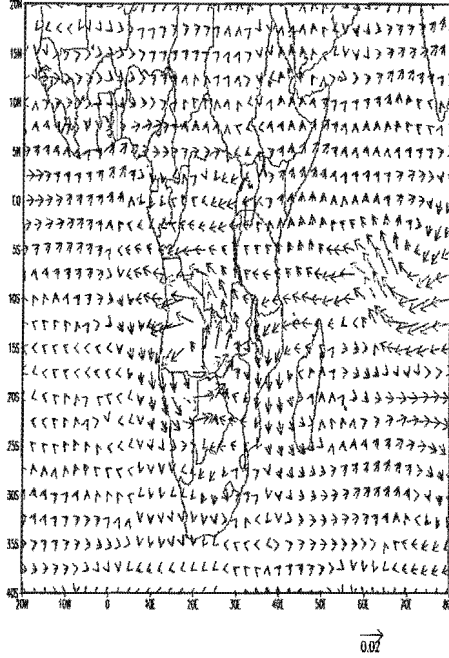 20N
15N
10N
5N
EQ
5S
10S
15S
20S
25S
30S
35S
40S
20W 10W 0 10E 20E 30E 40E 50E 60E 70E
0.02